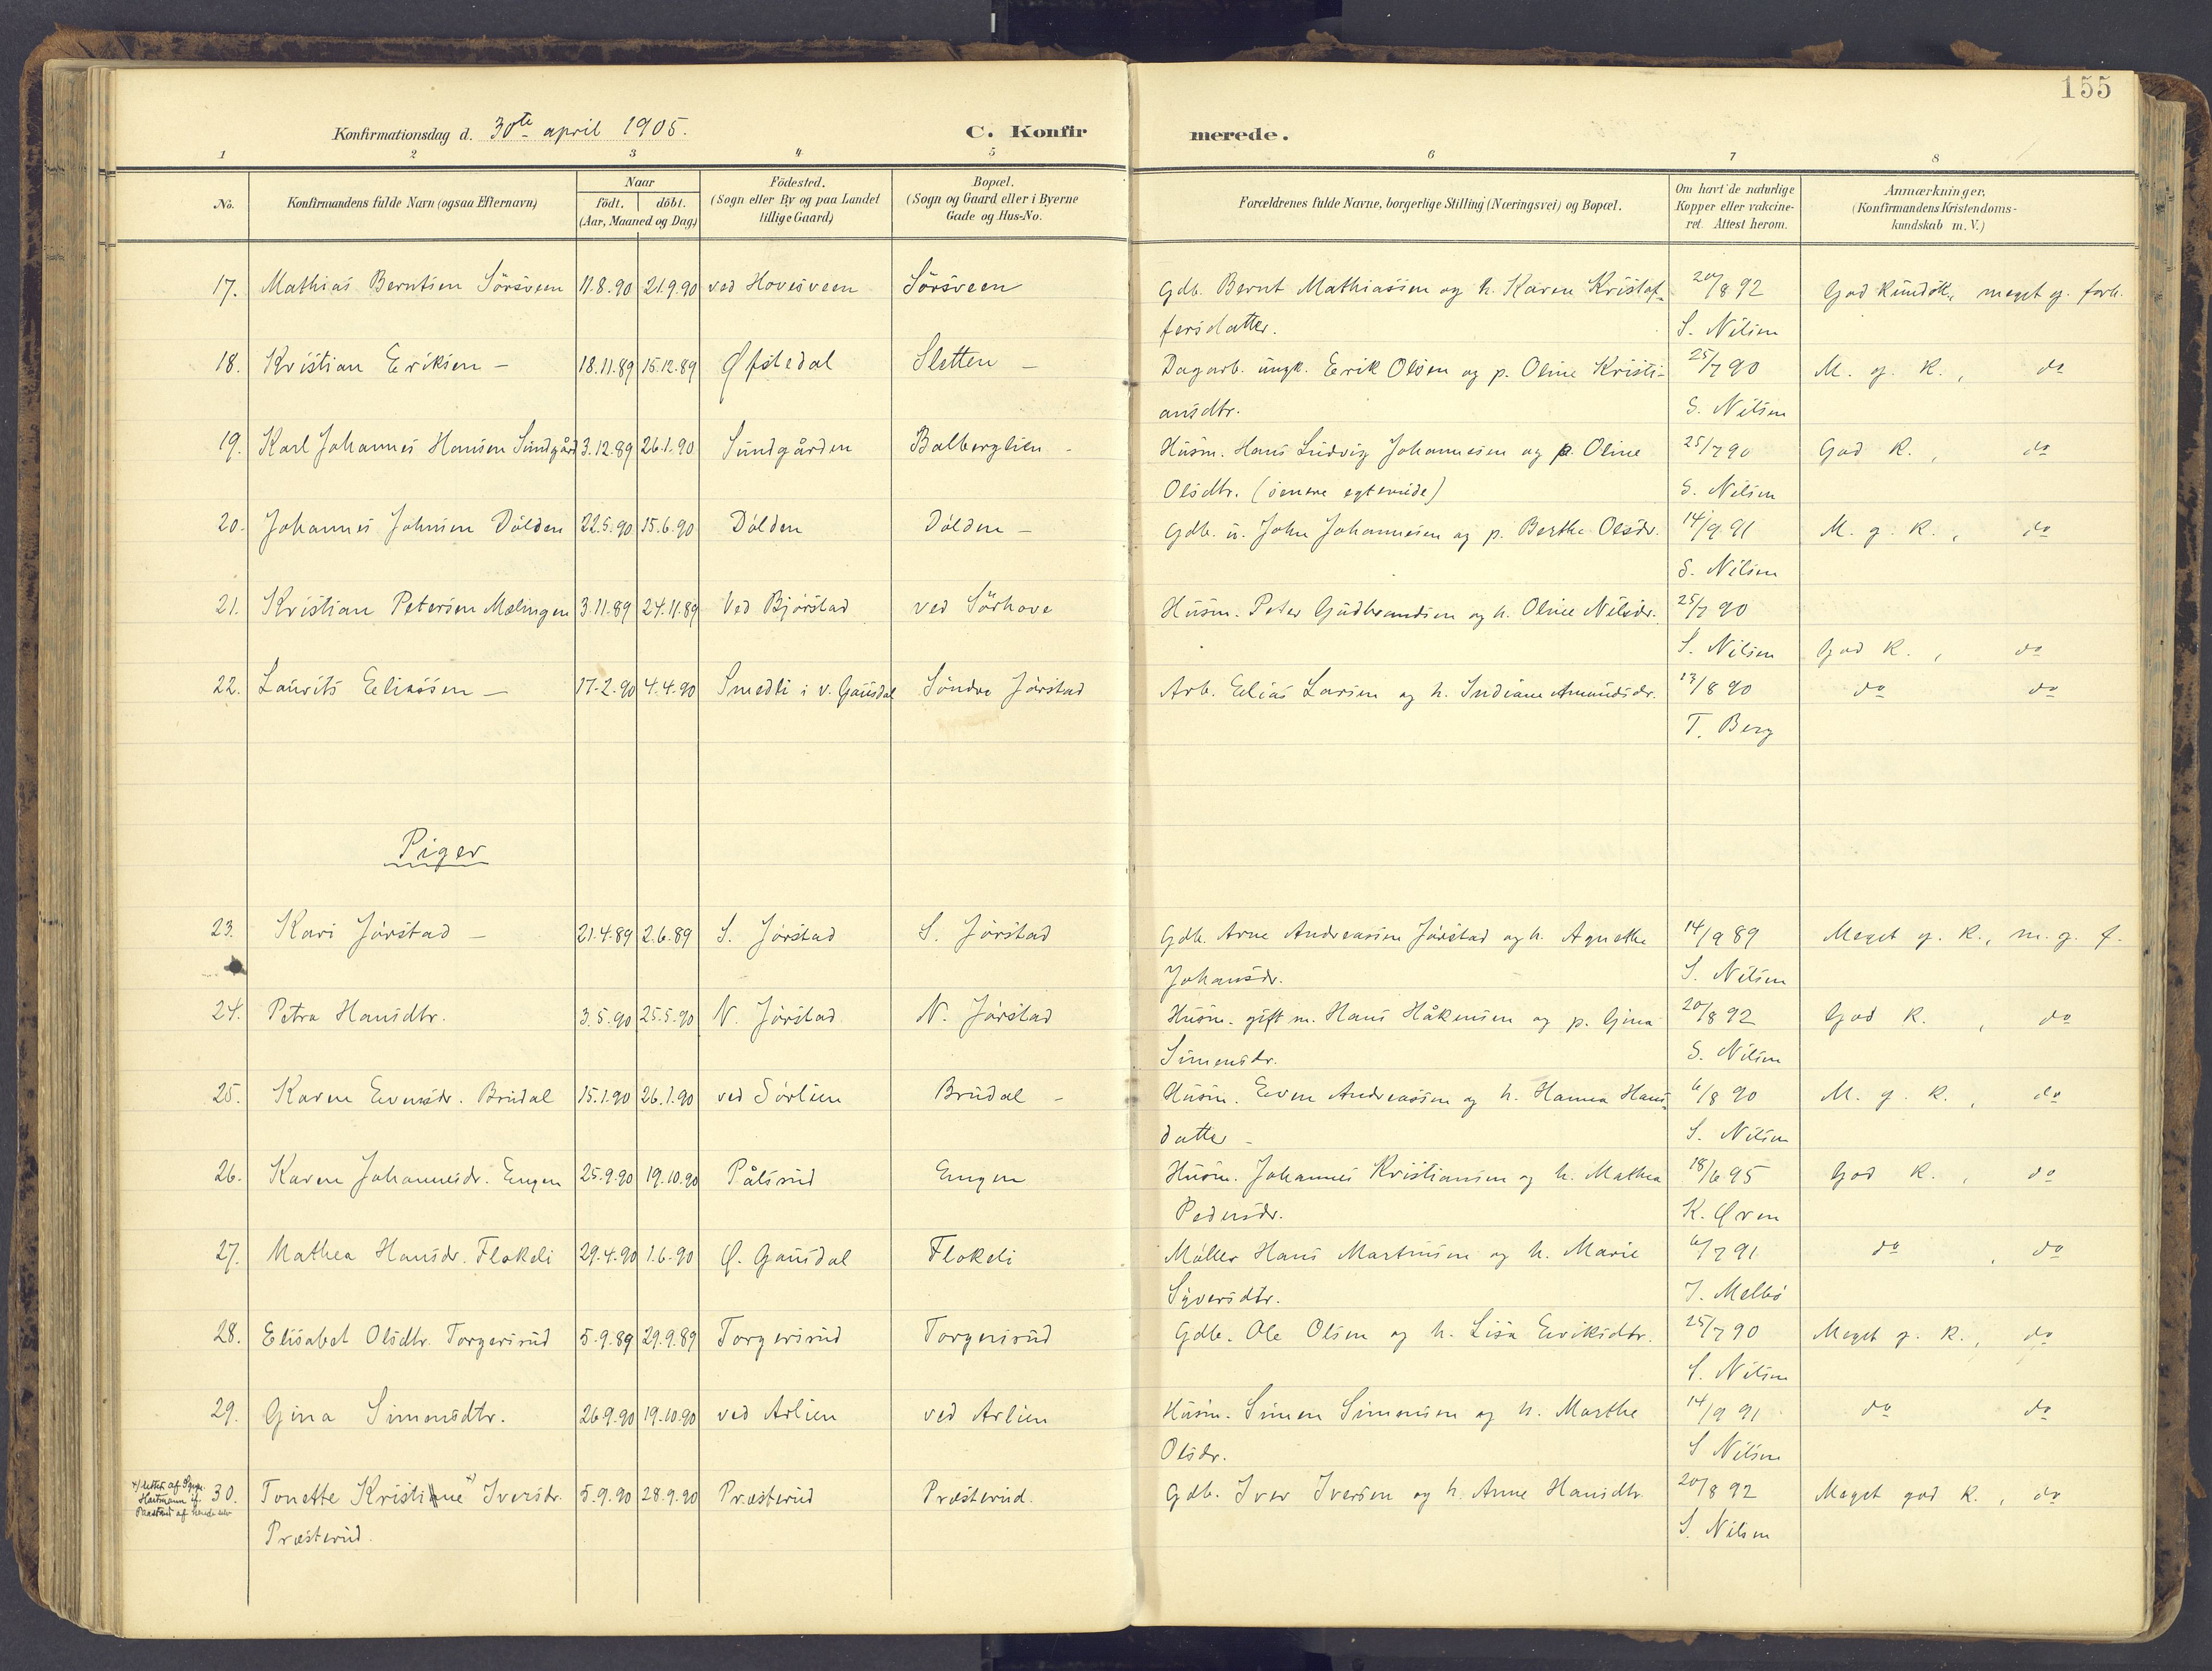 155
Konfirmationsdag d. 30te april 1905.
C. Konfirmerede.
1 2 3 4 5 6 7 8
No.
Konfirmandens fulde Navn (ogsaa Efternavn)
Naar
födt. döbt.
(Aar, Maaned og Dag)
Födested.
(Sogn eller By og paa Landet
tillige Gaard)
Bopæl.
(Sogn og Gaard eller i Byerne
Gade og Hus-No.
Forældrenes fulde Navne, borgerlige Stilling (Næringsvei) og Bopæl.
Om havt de naturlige
Kopper eller vakcine-
ret. Attest herom.
Anmærkninger.
(Konfirmandens Kristendoms-
kundskab m. V.)
17. Mathias Berntsen Sörsveen 11.8.90 21.9.90 ved Hovesveen Sörsveen Gdb. Bernt Mathiassen og h. Karen Kristof- 20/8 92 God kundsk., meget g. forh.
fersdatter. S. Nilsen
18. Kristian Eriksen – 18.11.89 15.12.89 Øfstedal Sletten – Dagarb. ungk. Erik Olsen og p. Oline Kristi- 25/7 90 M. g. K., do
ansdtr. S. Nilsen
19. Karl Johannes Hansen Sundgård 3.12.89 26.1.90 Sundgården Balberglien - Husm. Hans Ludvig Johannesen og p. Oline 25/7 90 God K., do
Olsdtr. (senere egteviede) S. Nilsen
20. Johannes Johnsen Dölden 22.5.90 15.6.90 Dölden Dölden – Gdb. u. John Johannesen og p. Berthe Olsdr. 14/9 91 M. g. K., do
S. Nilsen
21. Kristian Petersen Mælingen 3.11.89 24.11.89 Ved Bjørstad ved Sörhove Husm. Peter Gudbrandsen og h. Oline Nilsdr. 25/7 90
S. Nilsen God K., do
22. Laurits Eliassen – 17.2.90 4.4.90 Smedli i v. Gausdal Söndre Jörstad Arb. Elias Larsen og h. Indiane Amundsdr. 13/8 90 do do
T. Berg
Piger
23. Kari Jörstad – 21.4.89 2.6.89 S. Jörstad S. Jörstad Gdb. Arne Andreassen Jörstad og h. Agnethe 14/9 89 Meget g. K., m. g. f.
Johansdr. S. Nilsen
24. Petra Hansdtr. 3.5.90 25.5.90 N. Jörstad N. Jörstad Husm. gift m. Hans Håkensen og p. Gina 20/8 92 God K., do
Simensdr. S. Nilsen
25. Karen Evensdr. Brudal 15.1.90 26.1.90 ved Sörlien Brudal – Husm. Even Andreassen og h. Hanna Hans- 6/8 90 M. g. K., do
datter – S. Nilsen
26. Karen Johannesdr. Engen 25.9.90 19.10.90 Pålsrud Engen Husm. Johannes Kristiansen og h. Mathea 18/6 95 God K., do
Pedersdr. K. Øren
27. Mathea Hansdr. Flokeli 29.4.90 1.6.90 Ø. Gausdal Flokeli Möller Hans Martinsen og h. Marie 6/7 91 do, do
Syversdtr. J. Melbö
28. Elisabet Olsdtr. Torgersrud 5.9.89 29.9.89 Torgersrud Torgersrud Gdb. Ole Olsen og h. Lisa Eriksdtr. 25/7 90 Meget g. K., do
S. Nilsen
29. Gina Simensdtr. 26.9.90 19.10.90 ved Arlien ved Arlien Husm. Simen Simensen og h. Marthe 14/9 91 do do
Olsdr. S. Nilsen
x) rettet af Spr. Hartmann
af hende selv
30. Tonette Kristine x) Iversdr. 5.9.90 28.9.90 Præsterud Præsterud. Gdb. Iver Iversen og h. Anne Hansdtr. 20/8 92 Meget god K., do
Præsterud. S. Nilsen